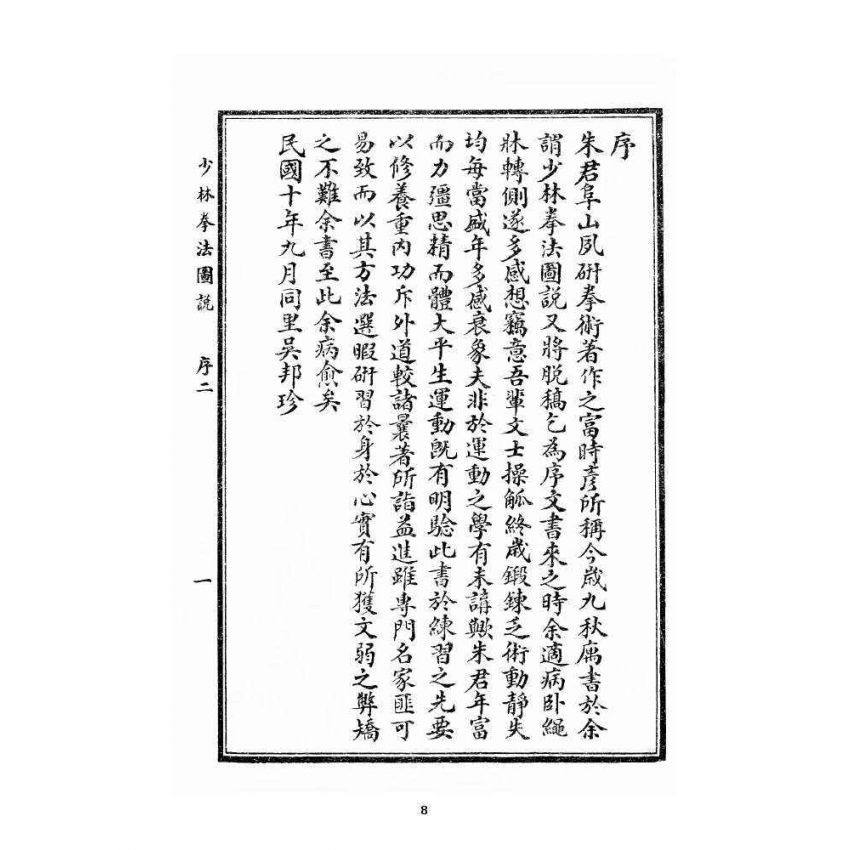 序
朱君阜山夙研拳術著作之富時彥所稱今歲九秋寓書於余
謂少林拳法圖說又將脫稿乞為序文書來之時余適病臥繩
牀轉側遂多感想竊意吾輩文士操觚終歲鍛鍊乏術動靜失
均每當盛年多感衰象夫非於運動之學有未講歟朱君年富
而力彊思精而體大平生運動旣有明驗此書於練習之先要
以修養重內功斥外道較諸曩著所詣益進雖專門名家匪可
易致而以其方法選暇研習於身於心實有所獲文弱之弊矯
之不難余書至此余病愈矣
民國十年九月同里吳邦珍
少林拳法圖說 序二 一
8